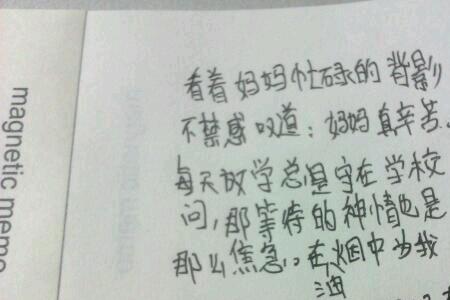 magnetic memo
看着妈妈忙碌的背影
不禁感叹道：妈妈真辛苦.
每天放学总是守在学校
问,那等待的神情也是
那么焦急。在烟中为我
油